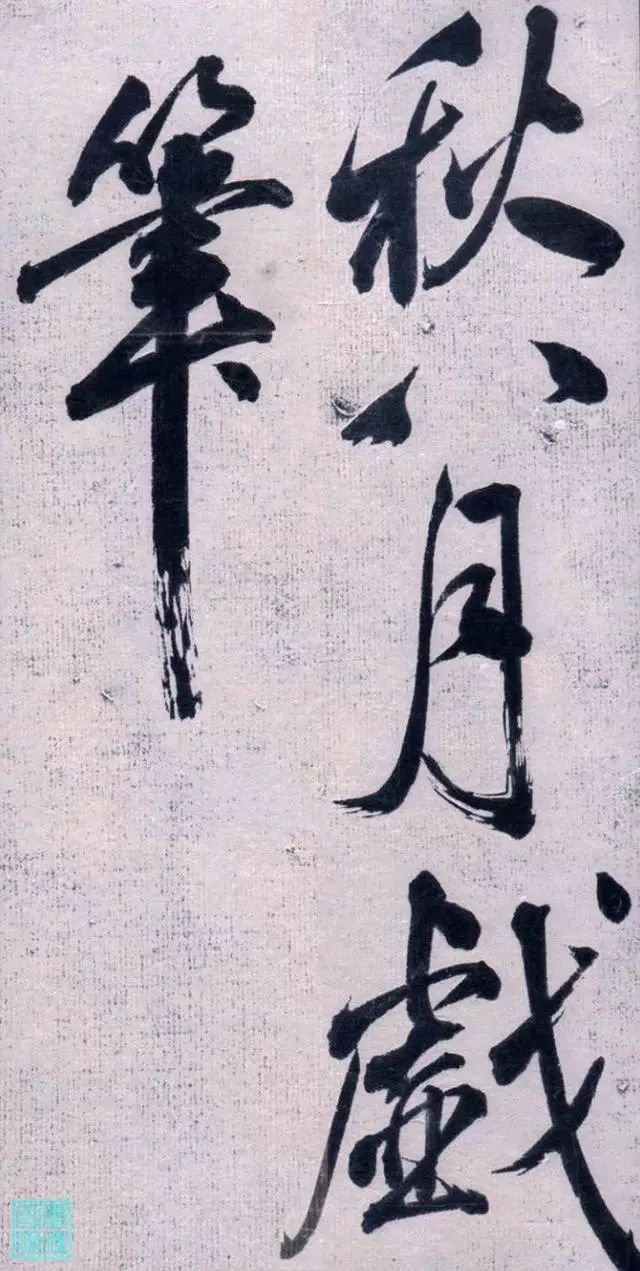 秋八月戲
筆